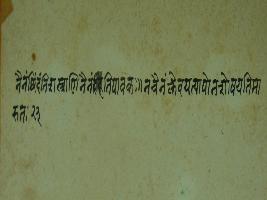 नैनंछिंदंतिशस्त्राणिनैनंदहतिपावकः॥नचैनंक्लेदयंत्यापोनशोषयतिमा
रुतः २३